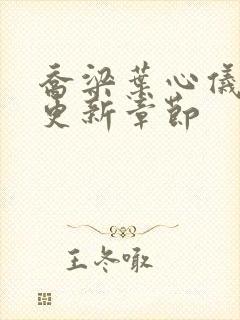 乔梁葉心儀
更新章節
王冬暾